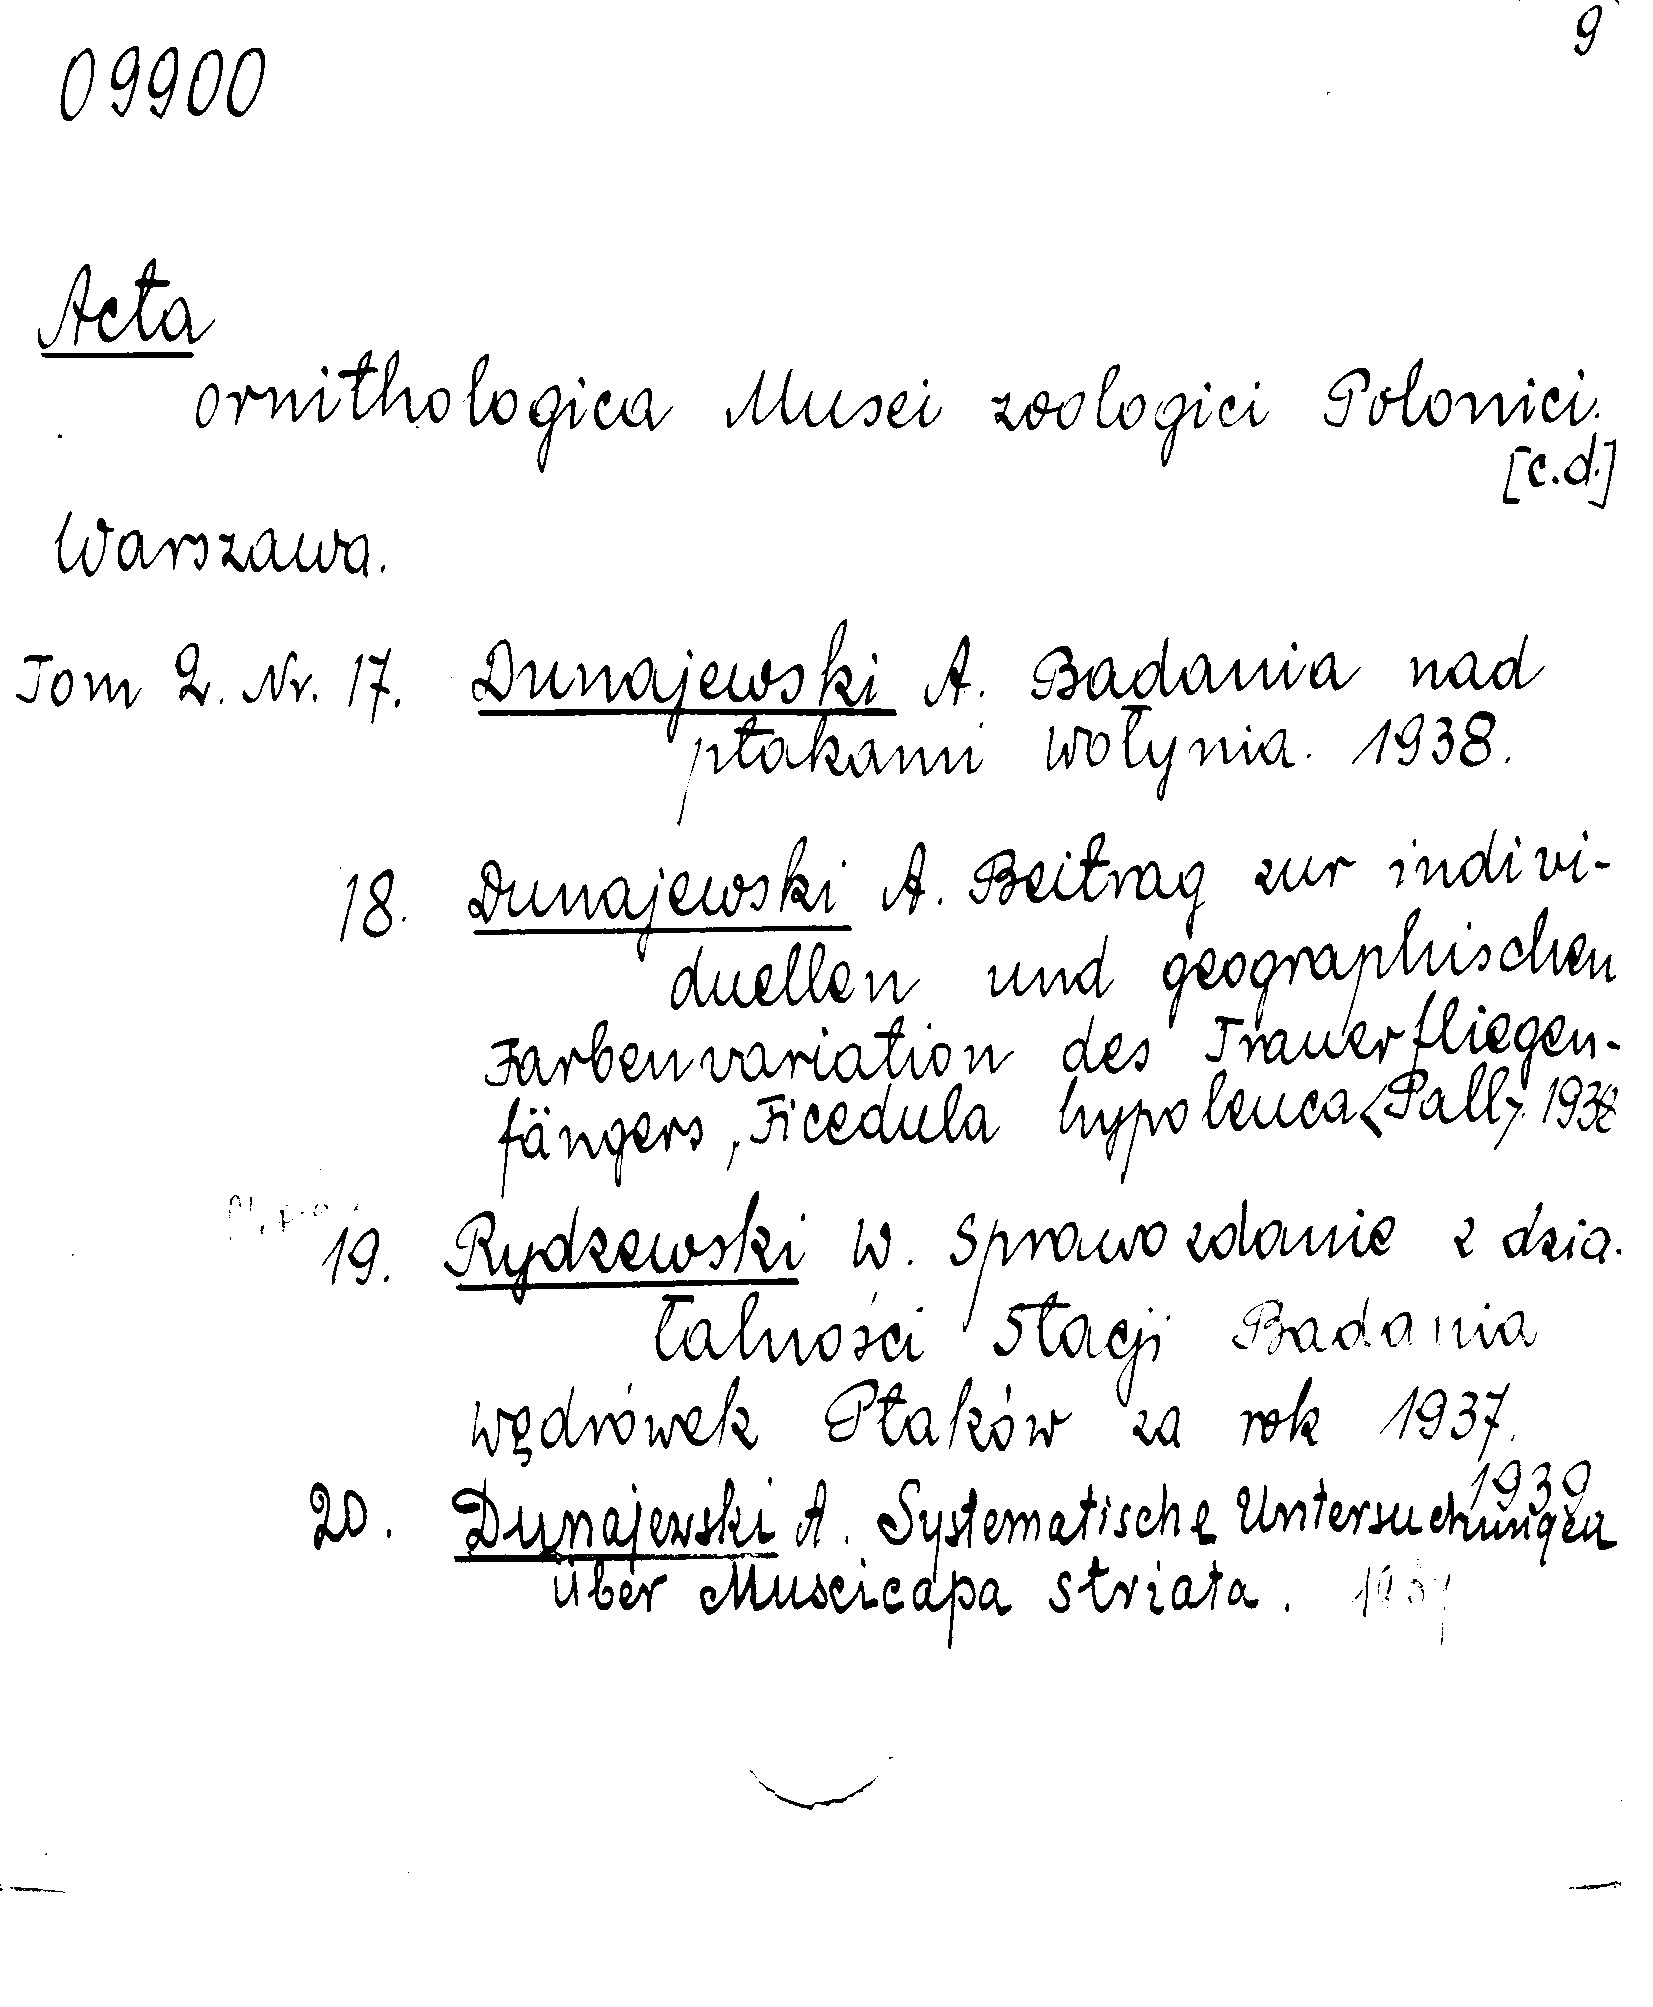 09900
9
Acta
ornithologica Musei zoologici Polonici.
[c.d.]
Warszawa.
Tom 2. Nr. 17. Dunajewski A. Badania nad
ptakami Wołynia. 1938.
18. Dunajewski A. Beitrag zur indivi-
duellen und geographischen
Farbenvariation des Trauerfliegen-
fängers, Ficedula hypoleuca <Pall>. 1938
19. Rydzewski W. Sprawozdanie z dzia-
łalności Stacji Badania
wędrówek Ptaków za rok 1937.
1939
20. Dunajewski A. Systematische Untersuchungen
über Muscicapa striata.